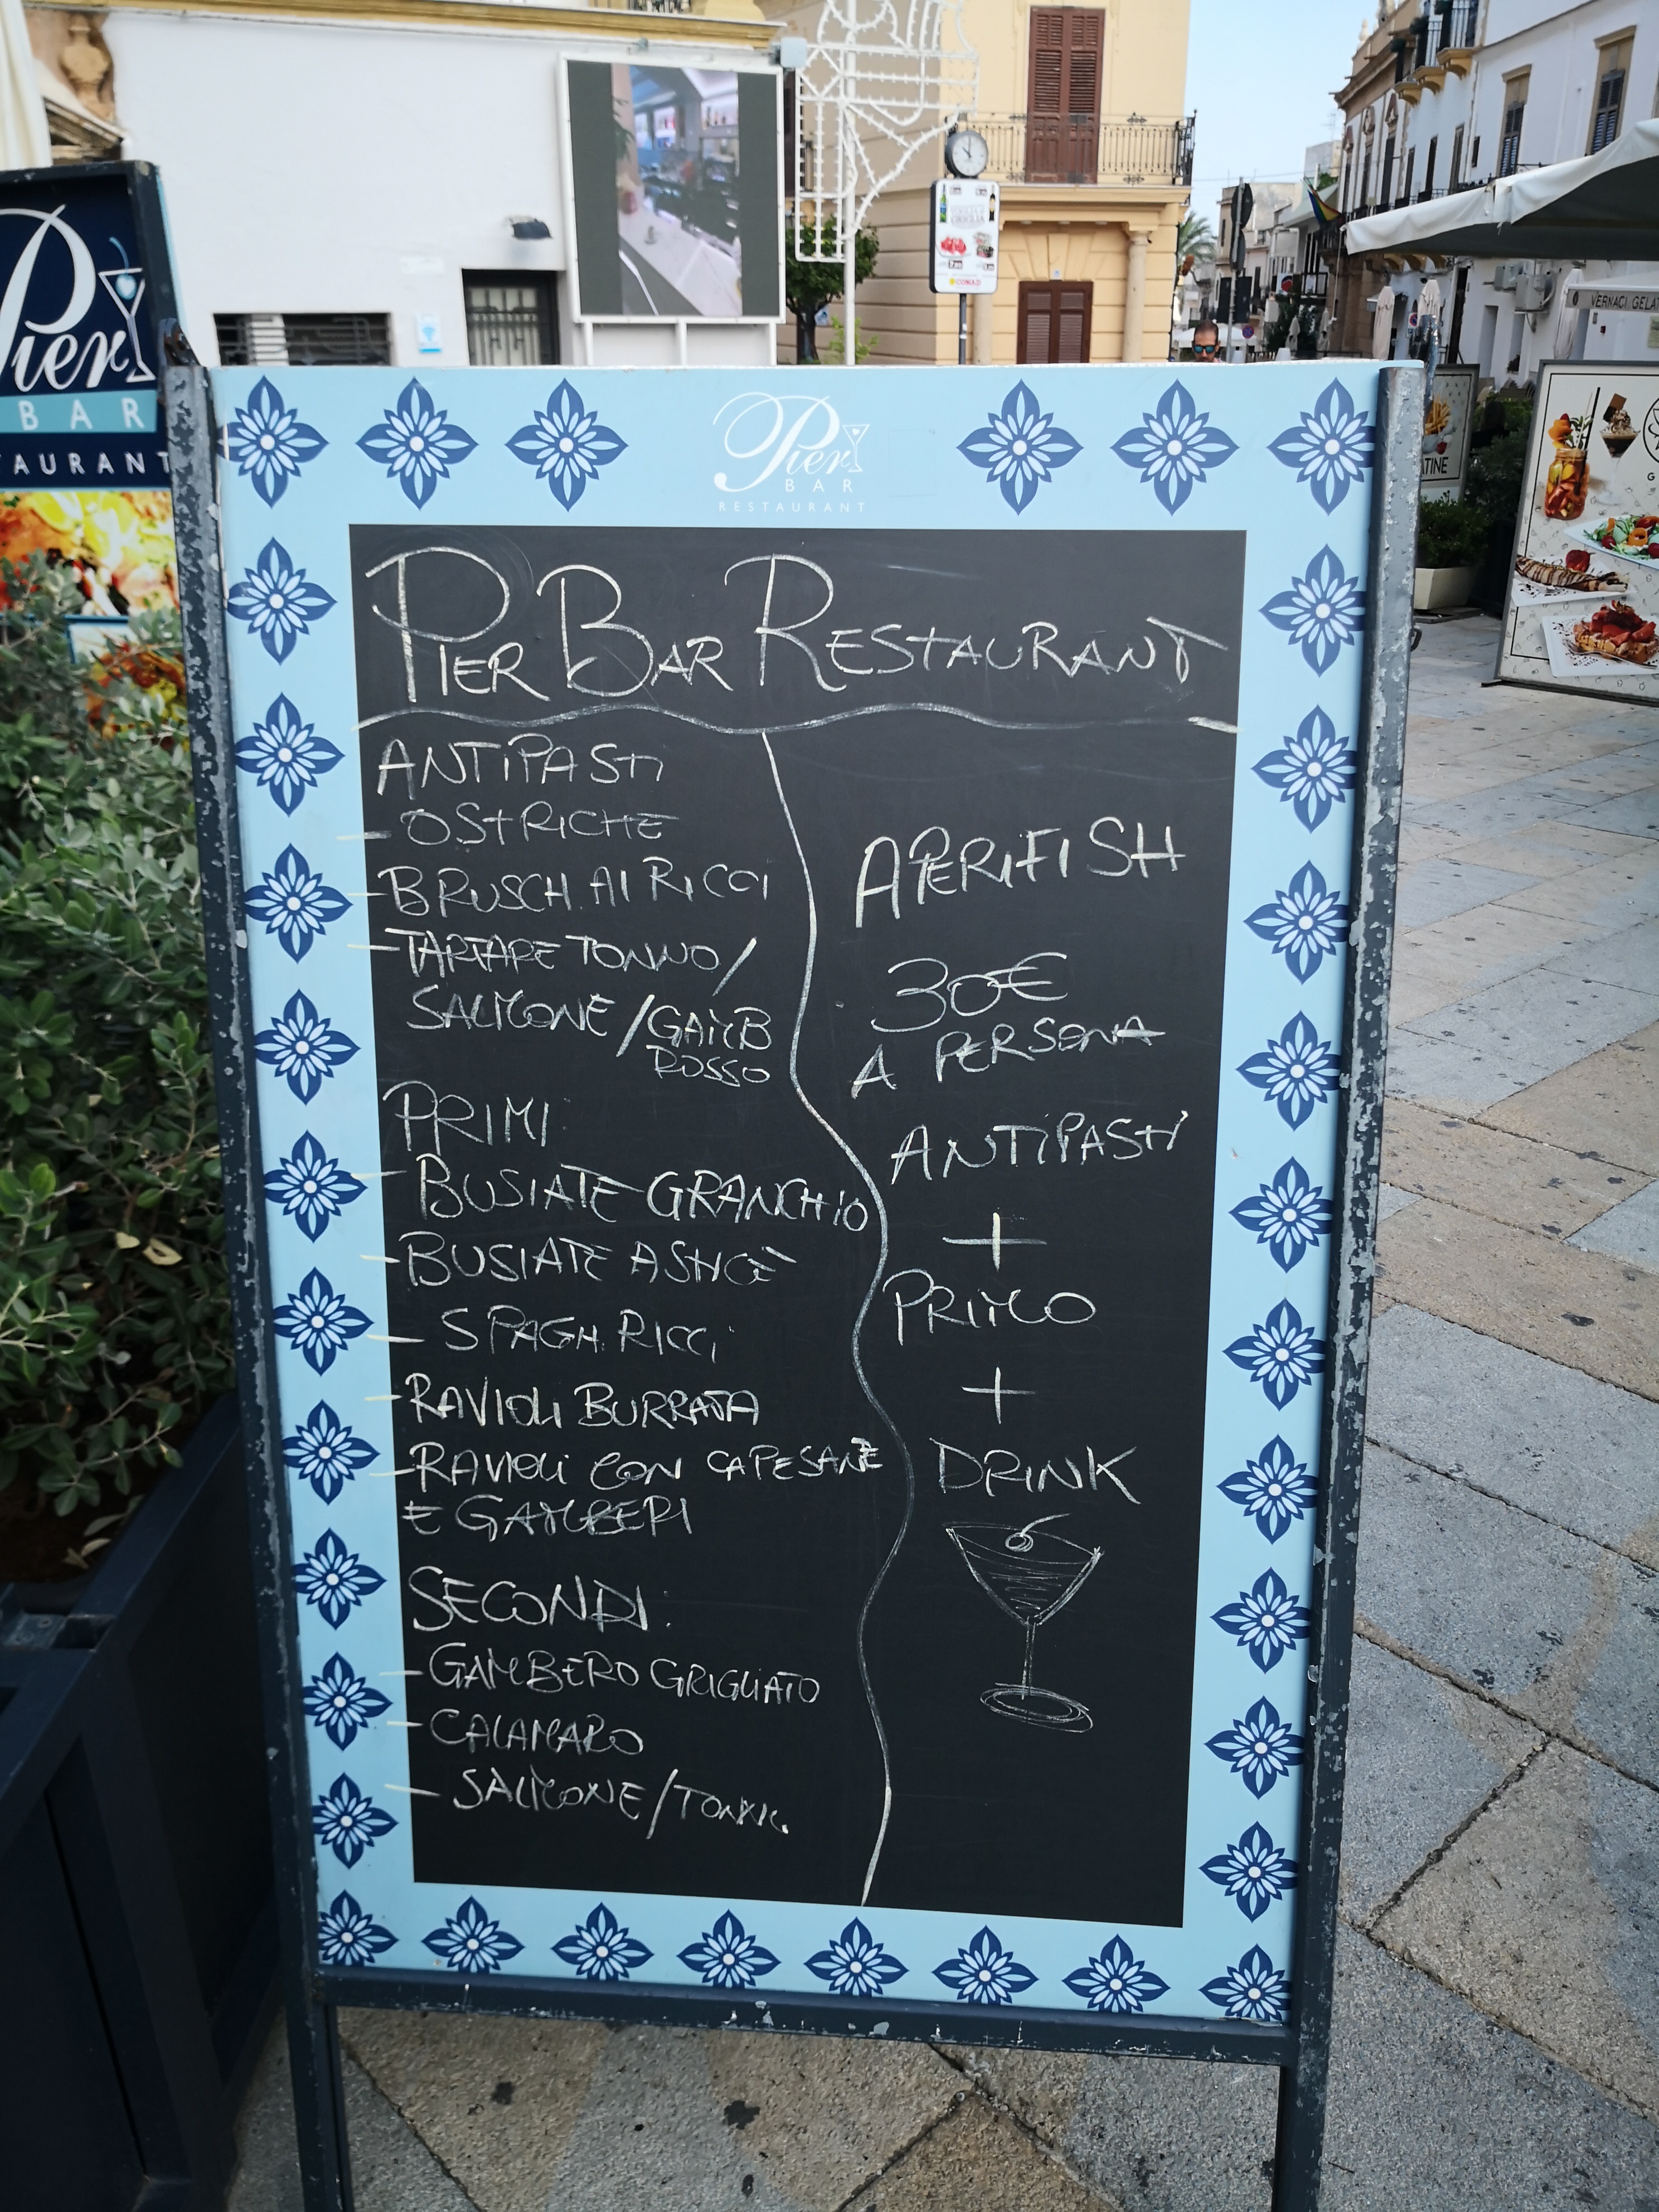 Pier
BAR
RESTAURANT
PIER BAR RESTAURANT
ANTIPASTI
- OSTRICHE
- BRUSCH. AI RICCI
- TARTARE TONNO/
SALMONE/GAMB
ROSSO
PRIMI
- BUSIATE GRANCHIO
- BUSIATE ASTICE
- SPAGH. RICCI
- RAVIOLI BURRATA
- RAVIOLI CON CAPESANTE
E GAMBERI
SECONDI:
- GAMBERO GRIGLIATO
- CALAMARO
- SALMONE/TONNO
APERIFISH
30€
A PERSONA
ANTIPASTI
+
PRIMO
+
DRINK
Pier
BAR
TAURANT
CONAD
VERNACI GELAT
TINE